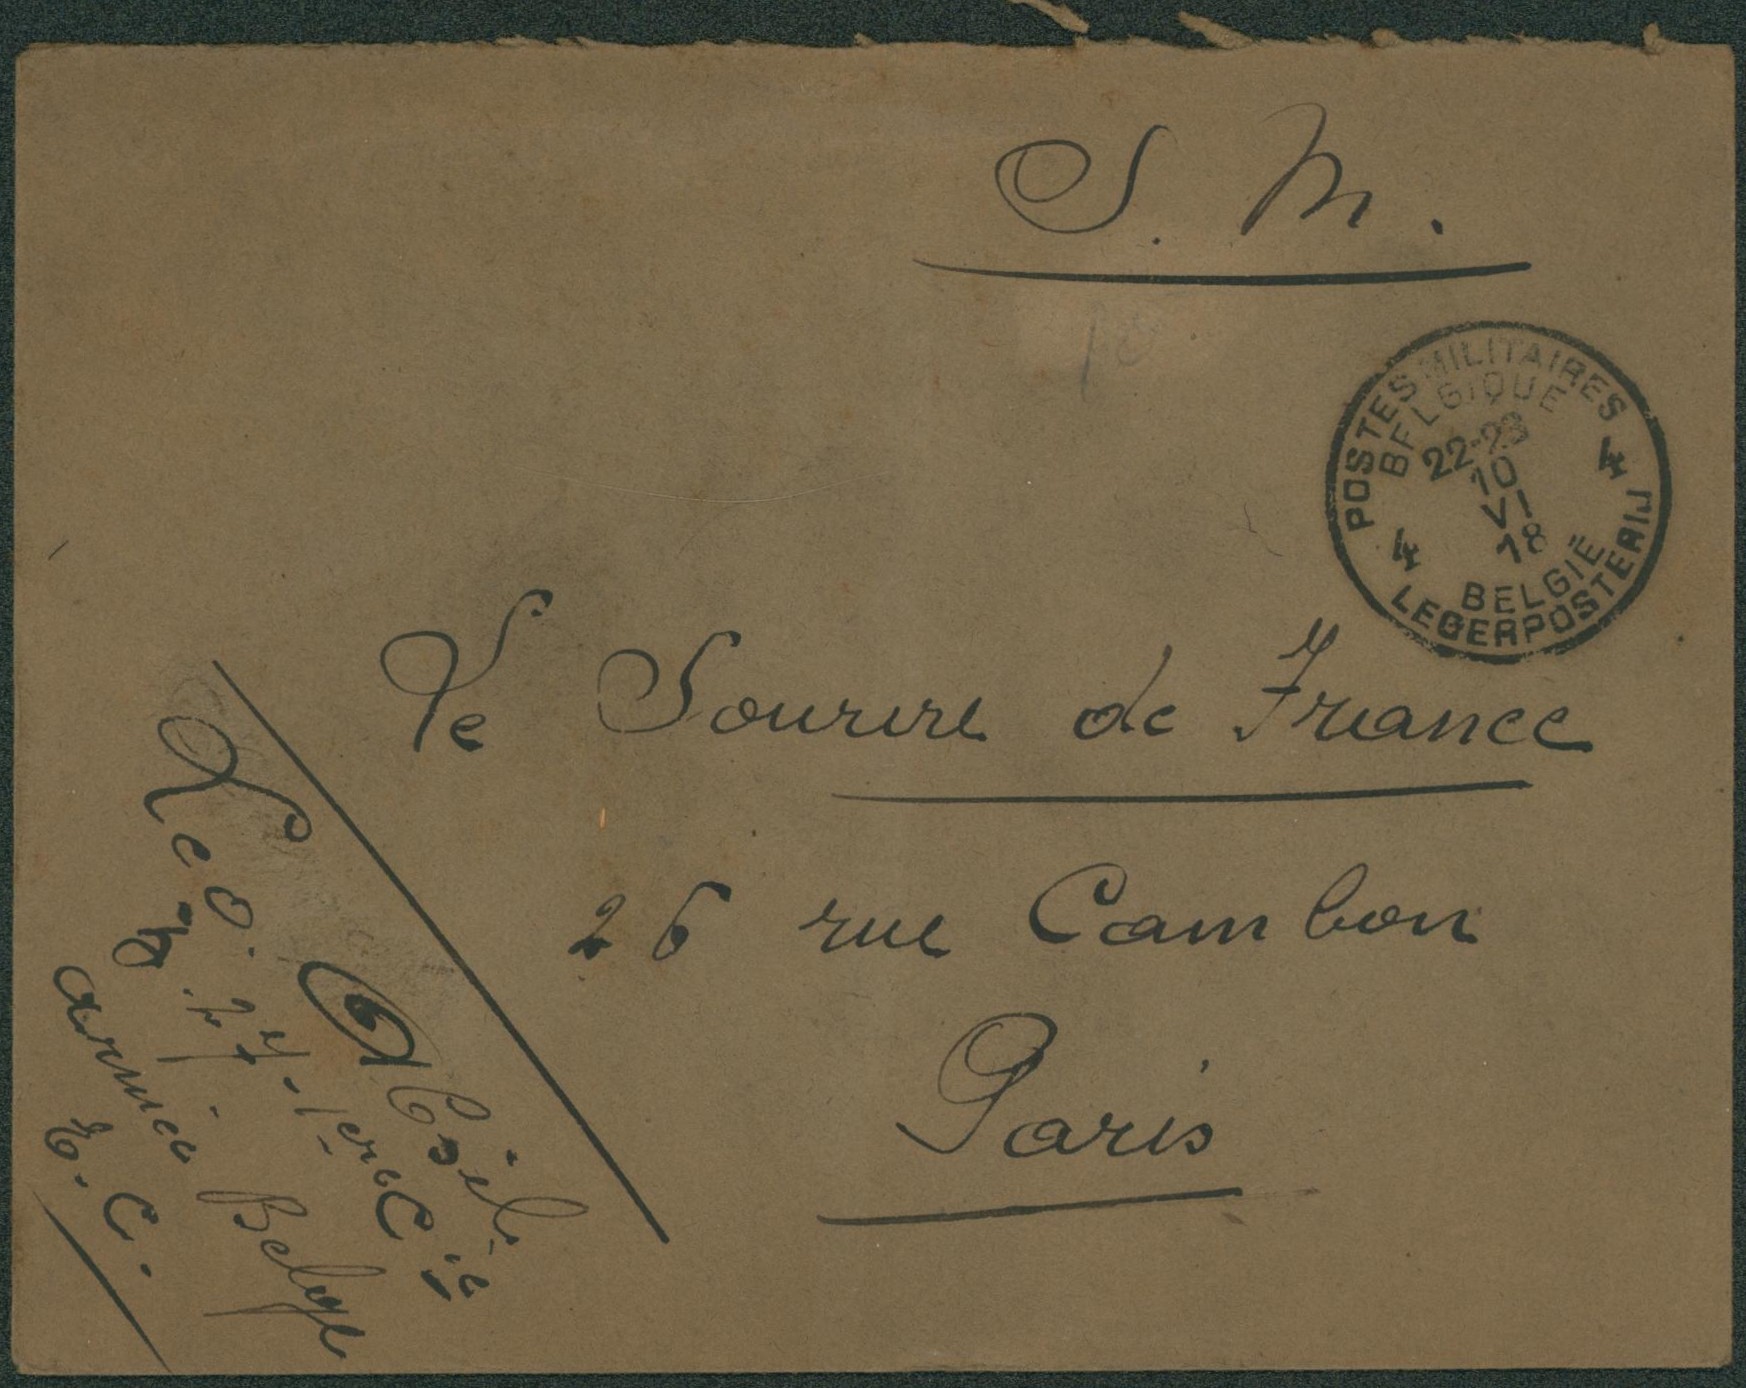 S. M.
POSTES MILITAIRES
BELGIQUE
22-23
10
VI
18
4 4
BELGIË
LEGERPOSTERIJ
Le Sourire de France
26 rue Cambon
Paris
Léo.
. 27 - 1ere Cie
armée Belge
E. C.